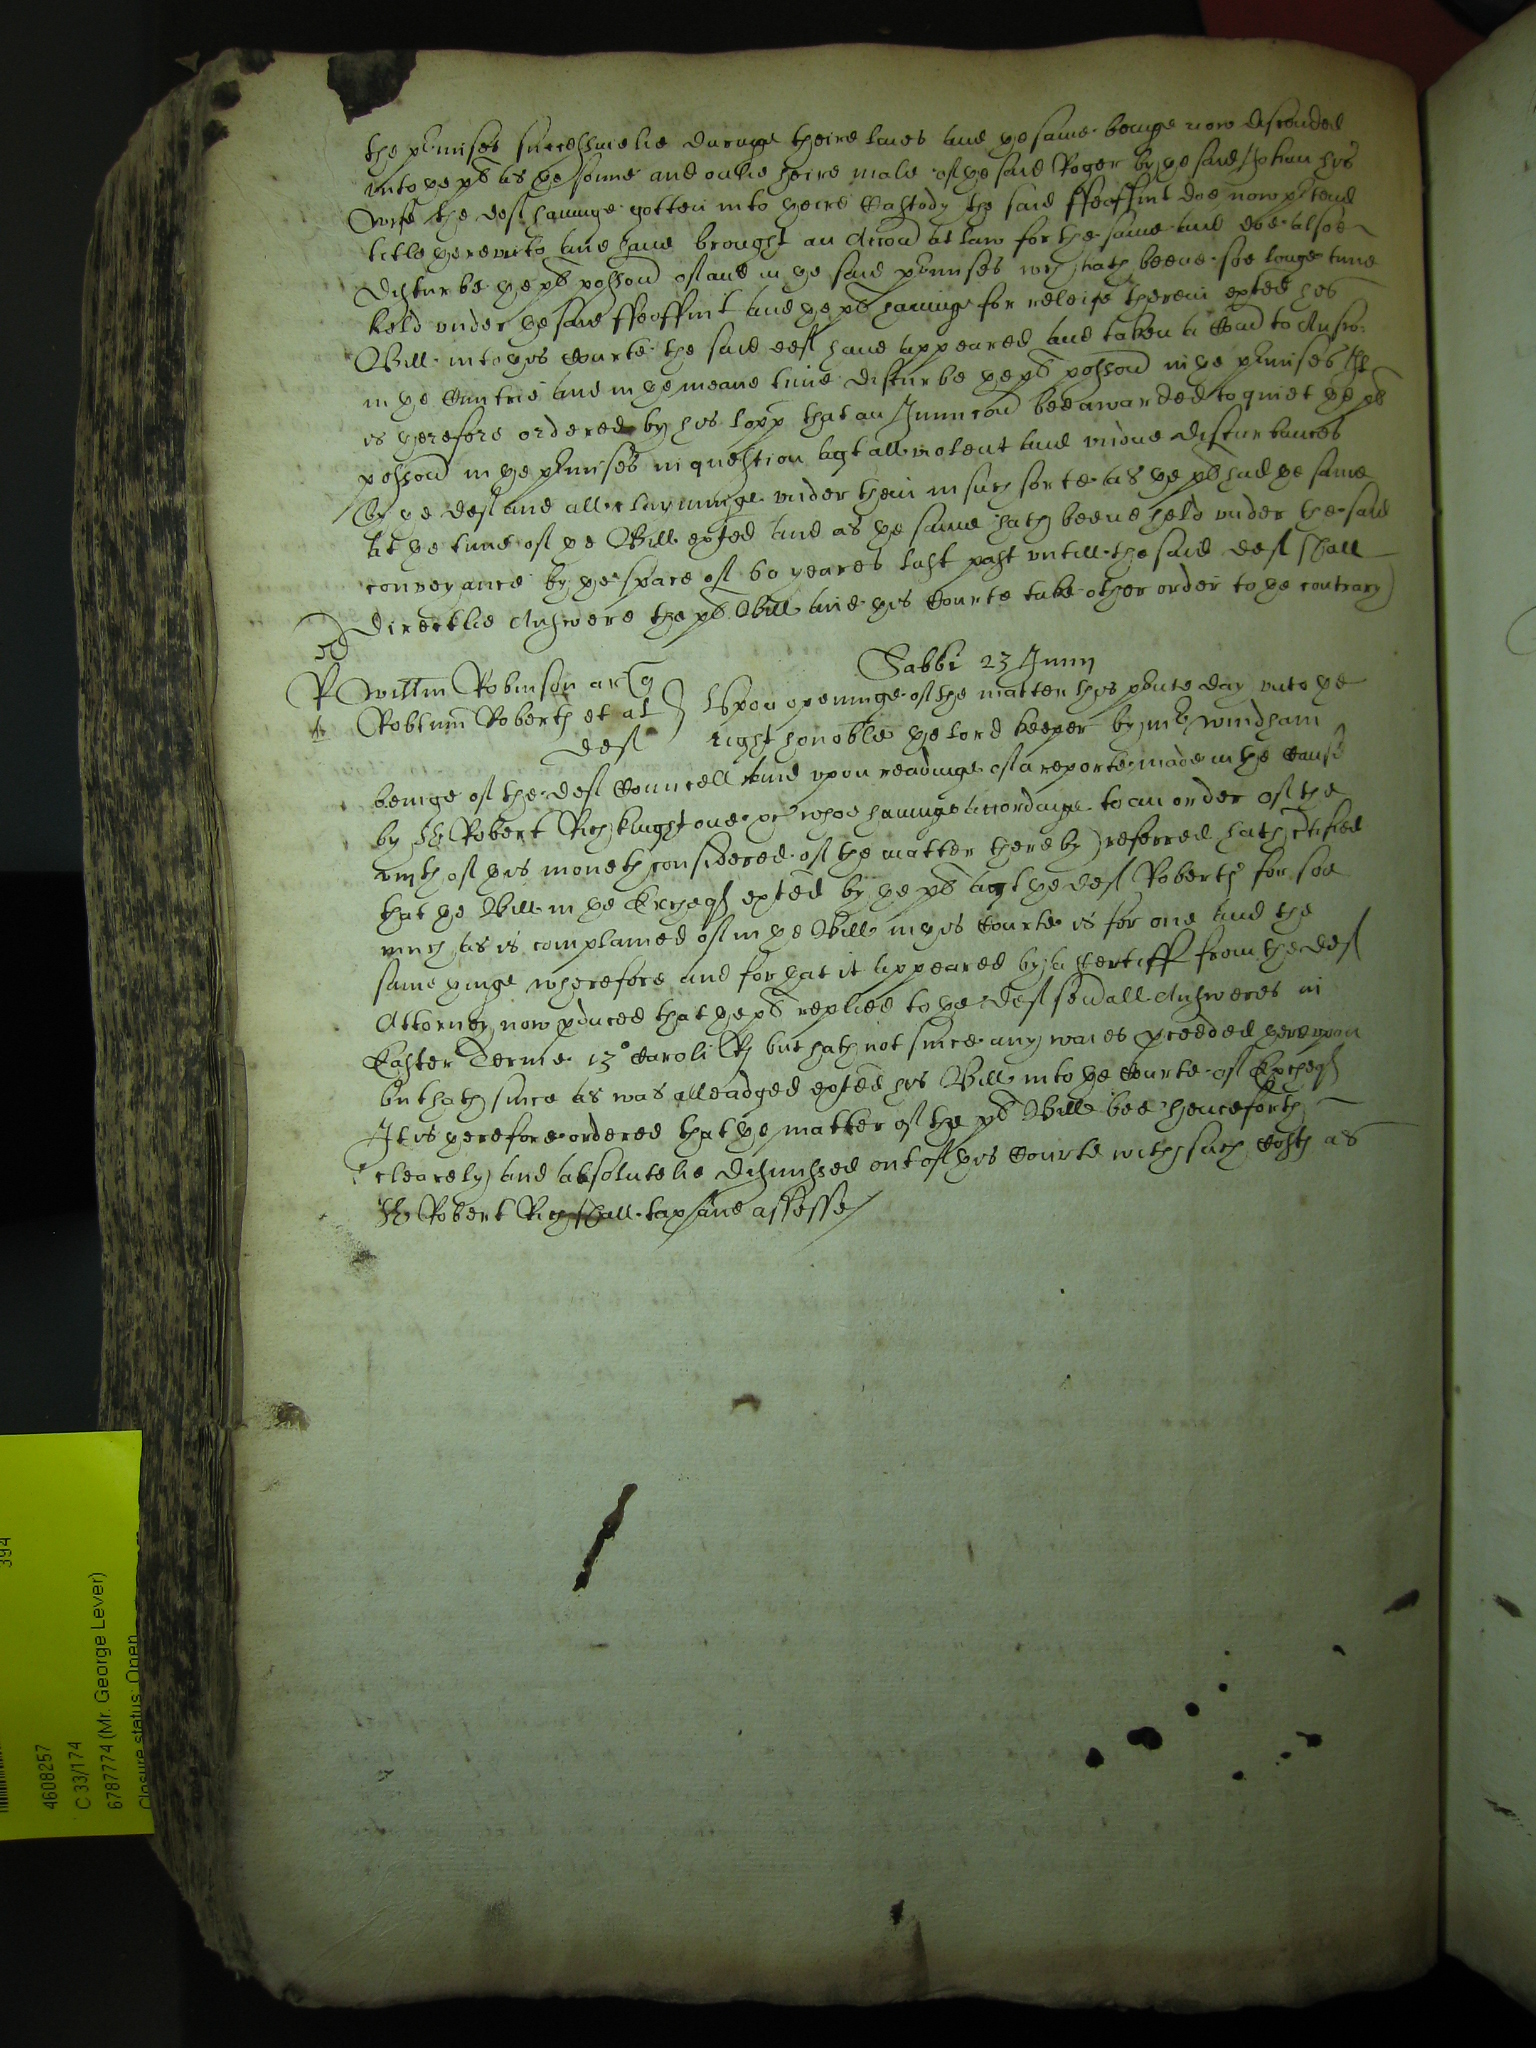 the pmises successivelie duringe theire lives and ye same beinge now discended
unto ye plt as ye sonne and onlie heire male of ye said Roger by ye said Johan his
wife the deft havinge gotten into theire Custody the said ffeoffmt doe now ptend
title yereunto and have brought an Accon at law for the same and doe alsoe
disturbe ye plt possion of and in ye said pmises wch hath beene soe longe time
held under ye said ffeoffmt and ye plt havinge for releife therein exted his
Bill into yis Courte the said deft have appeared and taken a Comd to Answr
in ye Cuntrie and in ye meane time disturbe ye plt possion in ye pmises It
is yerefore ordered by his lopp that an Iniuncon bee awarded to quiet ye plt
possion in ye pmises in question agt all violent and undue disturbances
by ye deft and all clayminge under them in such sorte as ye plt had ye same
at ye time of ye Bill exted and as ye same hath beene held under the said
conveyance by ye space of 60 yeares last past untill the said deft shall
directlie Answere the plt Bill and yis Courte take other order to ye contrary
Sabbi 23 Junij
R Willm Robinson ar q
Robtum Roberts et al
deft
Upon openinge of the matter this pnte day unto ye
right honoble ye lord keeper by mr Windham
beinge of the deft Councell and upon readinge of a reporte made in the Cause
by Sr Robert Rich knight one &c whoe havinge accordinge to an order of the
viijth of yis moneth considered of the matter thereby referred hath ctified
that ye Bill in ye Excheqr exted by ye plt agt ye deft Roberts for soe
much as is complained of in ye Bill in yis Courte is for one and the
same yinge wherefore and for yat it appeared by a Certiff from the deft
Attorney now pduced that ye plt replied to ye deft sevall Answeres in
Easter Terme 13o Caroli Rs but hath not since any waies pceeded yereupon
but hath since as was alleadged exted his Bill into ye Courte of Excheqr
It is yerefore ordered that ye matter of the plt Bill bee henceforth
clearely and absolutelie dismissed out of yis Courte with such Costs as
Sr Robert Rich shall tax and assesse
394
4608257
C 33/174
6787774 (Mr. George Lever)
Closure status: Open